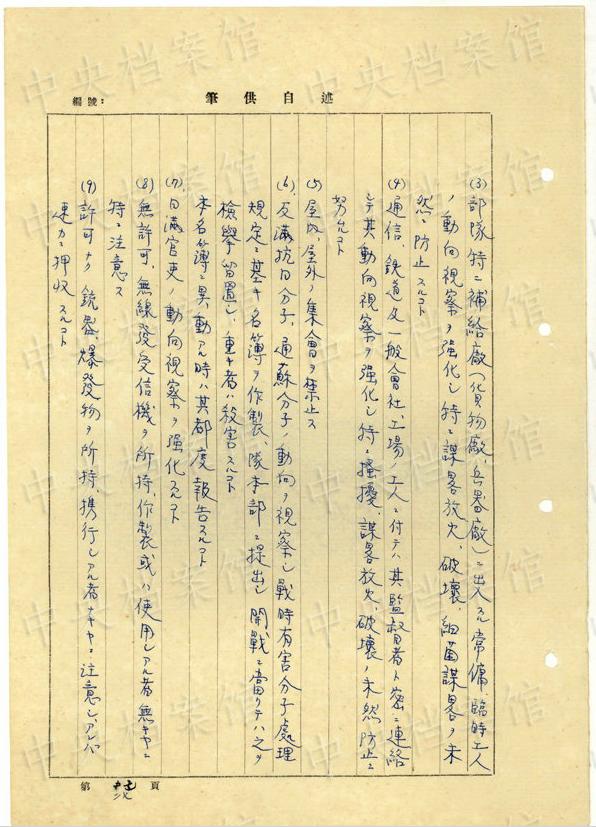 述自供筆
編號:
(3) 部隊特ニ補給廠(貨物廠、兵器廠)ニ出入スル常傭、臨時工人
ノ動向視察ヲ强化シ特ニ謀畧放火、破壞、細菌謀畧ヲ未
然ニ防止スルコト
(4) 通信、鉄道及一般會社、工場ノ工人ニ付テハ其監督者ト密ニ連絡
シテ其動向視察ヲ强化シ特ニ搔擾、謀畧放火、破壞ノ未然防止ニ
努ムルコト
(5) 屋內、屋外ノ集會ヲ禁止ス
(6) 反滿抗日分子、通蘇分子ノ動向ヲ視察シ戰時有害分子處理
規定ニ基キ名簿ヲ作製、隊本部ニ提出シ開戰ニ當リテハ之ヲ
檢擧留置シ、重キ者ハ殺害スルコト
本名簿ニ異動アル時ハ其都度報告スルコト
(7) 日滿官吏ノ動向視察ヲ强化スルコト
(8) 無許可、無線發受信機ヲ所持、作製或ハ使用シアル者無キヤニ
特ニ注意ス
(9) 許可ナク銃器、爆發物ヲ所持、携行シアル者ナキヤニ注意シアレバ
速カニ押收スルコト
第 頁
中央档案馆